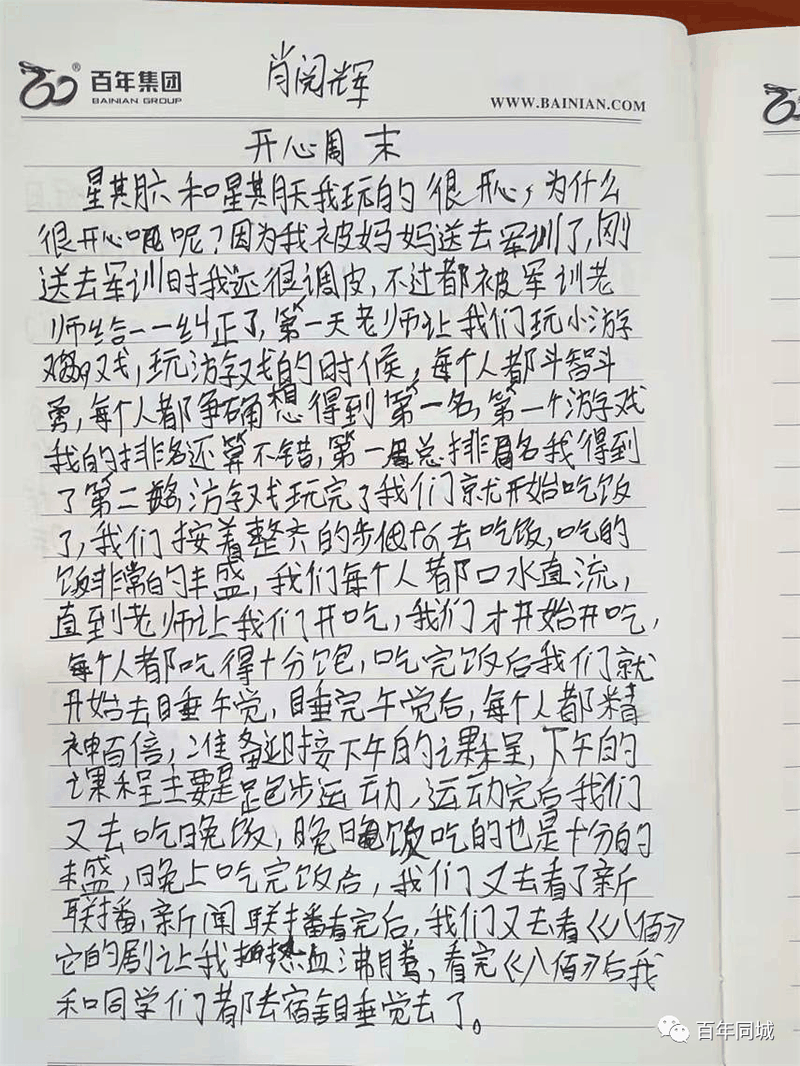 百年集团
BAINIAN GROUP
肖阅辉
WWW.BAINIAN.COM
开心周末
星期六和星期天我玩的很开心,为什么
很开心呢?因为我被妈妈送去军训了,刚
送去军训时我还很调皮,不过都被军训老
师给一一纠正了,第一天老师让我们玩小游
戏,玩游戏的时候,每个人都斗智斗
勇,每个人都争确想得到第一名,第一个游戏
我的排名还算不错,第一总排名我得到
了第二,游戏玩完了我们就开始吃饭
了,我们按着整齐的步伐去吃饭,吃的
饭非常的丰盛,我们每个人都口水直流,
直到老师让我们开吃,我们才开始开吃,
每个人都吃得十分饱,吃完饭后我们就
开始去睡午觉,睡完午觉后,每个人都精
神百倍,准备迎接下午的课程,下午的
课程主要是跑步运动,运动完后我们
又去吃晚饭,晚饭吃的也是十分的
丰盛,晚上吃完饭后,我们又去看了新
联播,新闻联播看完后,我们又去看《八佰》
它的剧让我热血沸腾,看完《八佰》后我
和同学们都去宿舍睡觉去了。
百年同城